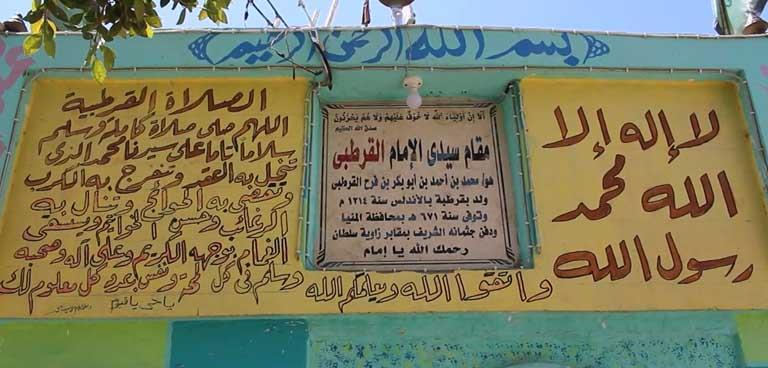 بسم الله الرحمن الرحيم
الصلاة القرطبية
اللهم صلى صلاة كاملة وسلم
سلاما تاما على سيدنا محمد الذى
تنحل به العقد وتنفرج به الكرب
وتقضى به الحوائج وتنال به
الرغائب وحسن الخواتيم ويستسقى
الغمام بوجهه الكريم وعلى آله وصحبه
وسلم فى كل لمحة ونفس بعدد كل معلوم لك
يا حى يا قيوم
ألا إن أولياء الله لا خوف عليهم ولا هم يحزنون
صدق الله العظيم
مقام سيدى الإمام القرطبى
هو/ محمد بن أحمد بن أبو بكر بن فرح القرطبى
ولد بقرطبة بالأندلس سنة ١٢١٤ م
وتوفى سنة ٦٧١ هـ بمحافظة المنيا
ودفن جثمانه الشريف بمقابر زاوية سلطان
رحمك الله يا إمام
واتقوا الله ويعلمكم الله
لا إله إلا
الله محمد
رسول الله